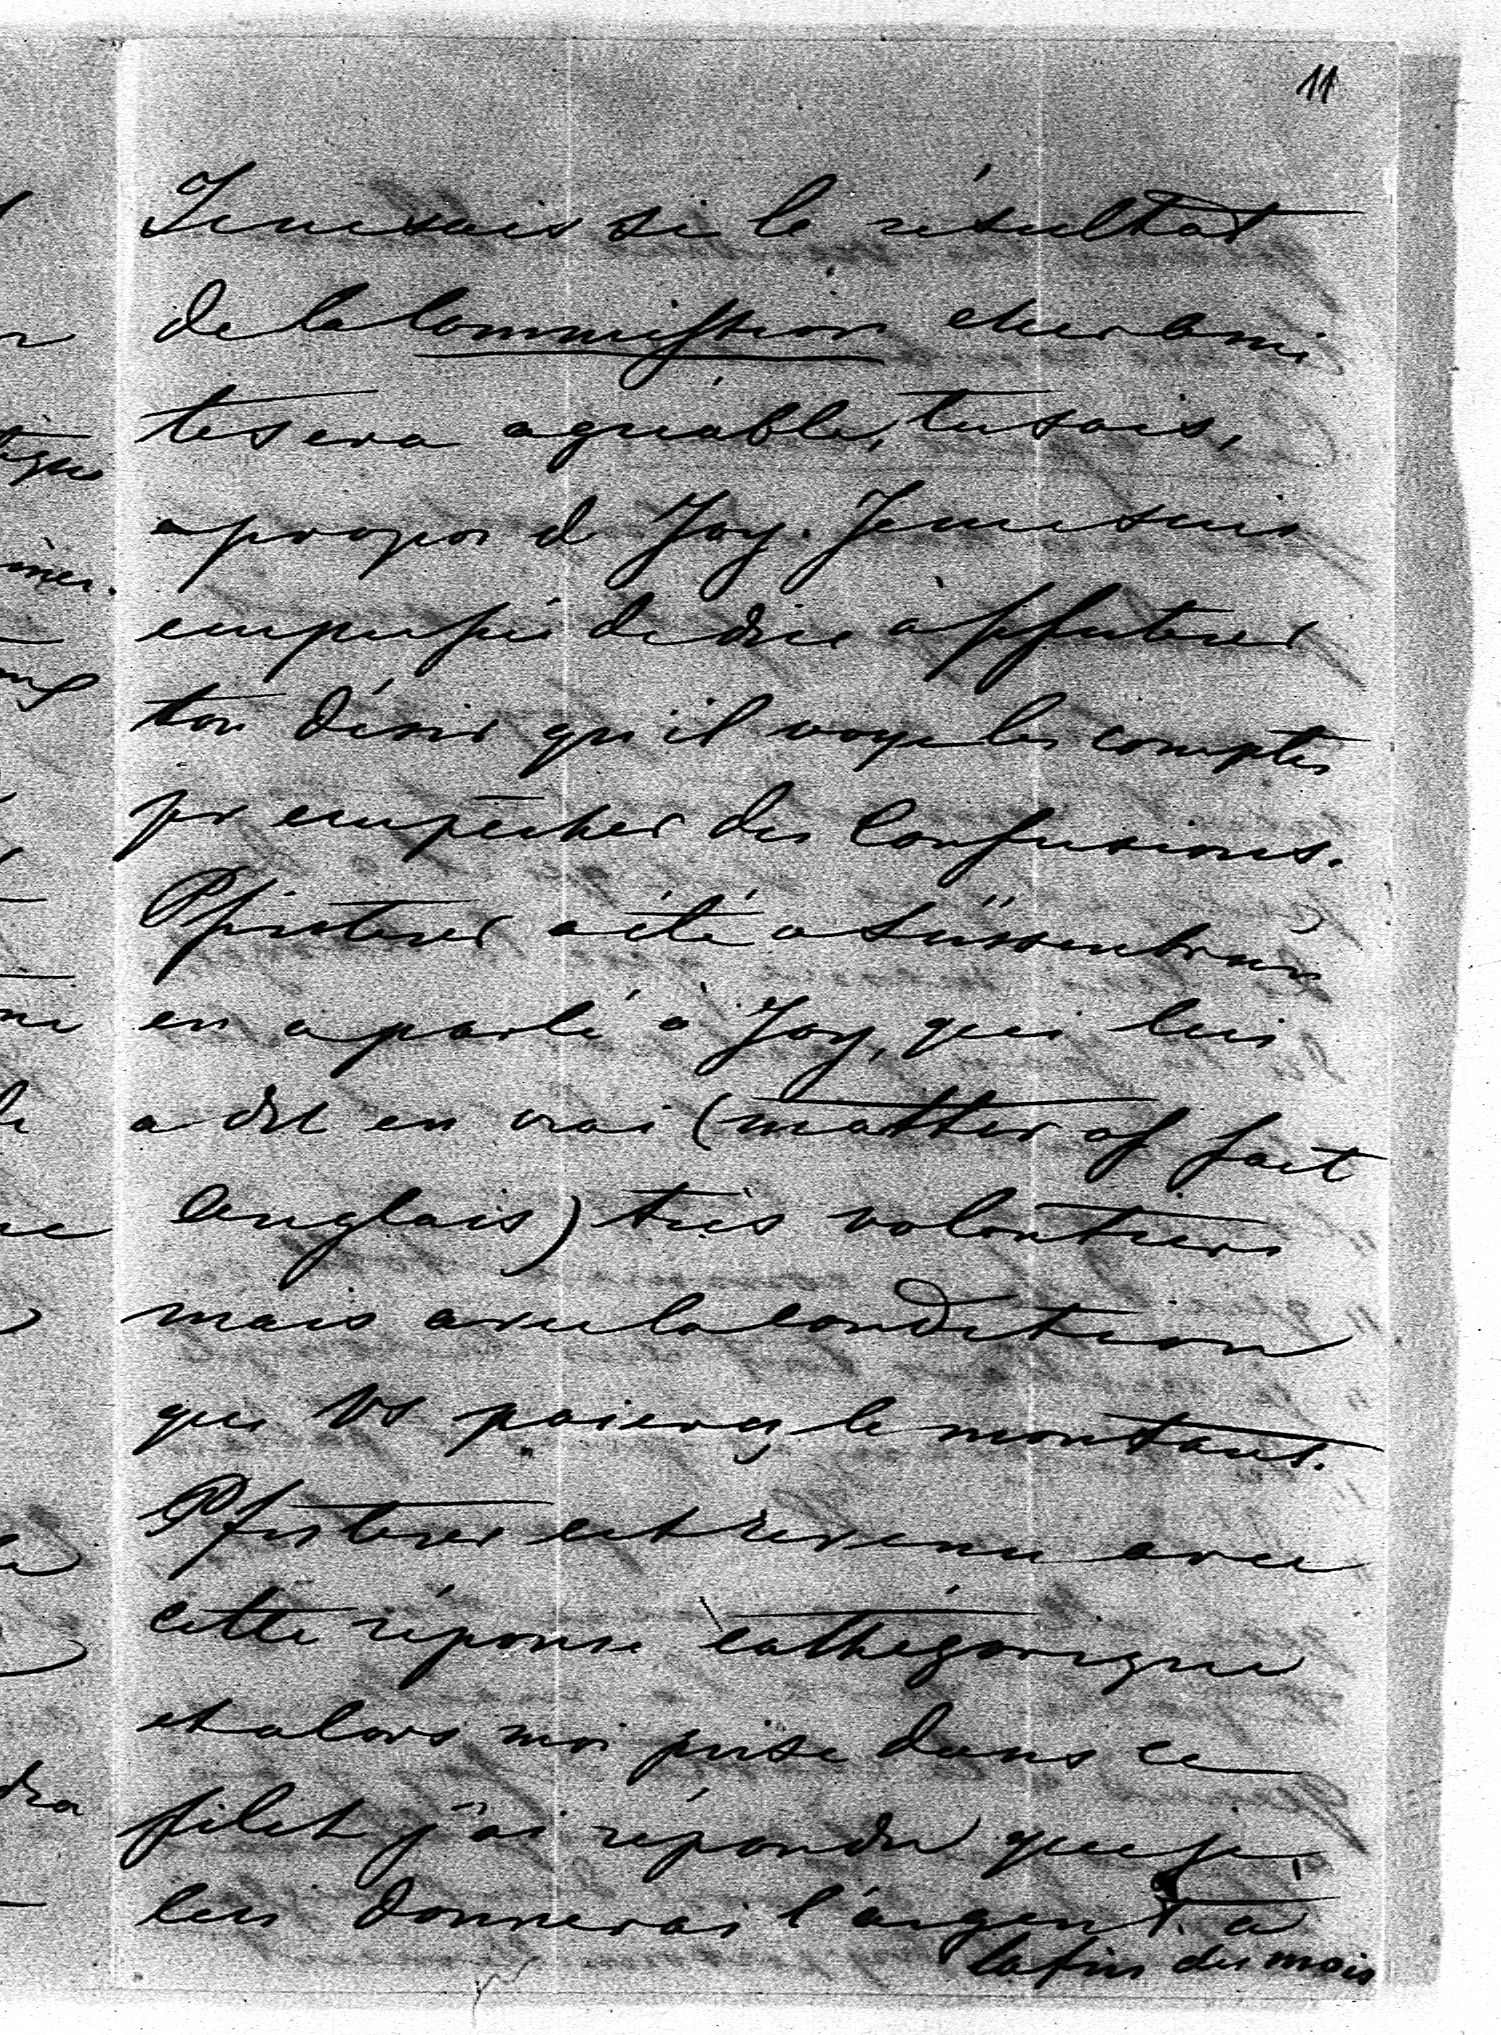 11
Je ne sais si le résultat
de la Commission cher ami
te sera agréable, tu sais,
apropos de Joy. Je me suis
empressé de dire à Pfisterer
ton désir qu'il voye les comptes
pr empêcher des Confusions.
Pfisterer a été a Süssenbrunn
en a parlé à Joy, qui lui
a dit en vrai (matter of fact
Anglais) très volontiers
mais avec la condition
que Vs paierez le montant.
Pfisterer est revenu avec
cette réponse cathégorique
et alors moi prise dans ce
filet j'ai répondu que je
lui donnerai l'argent à
la fin du mois